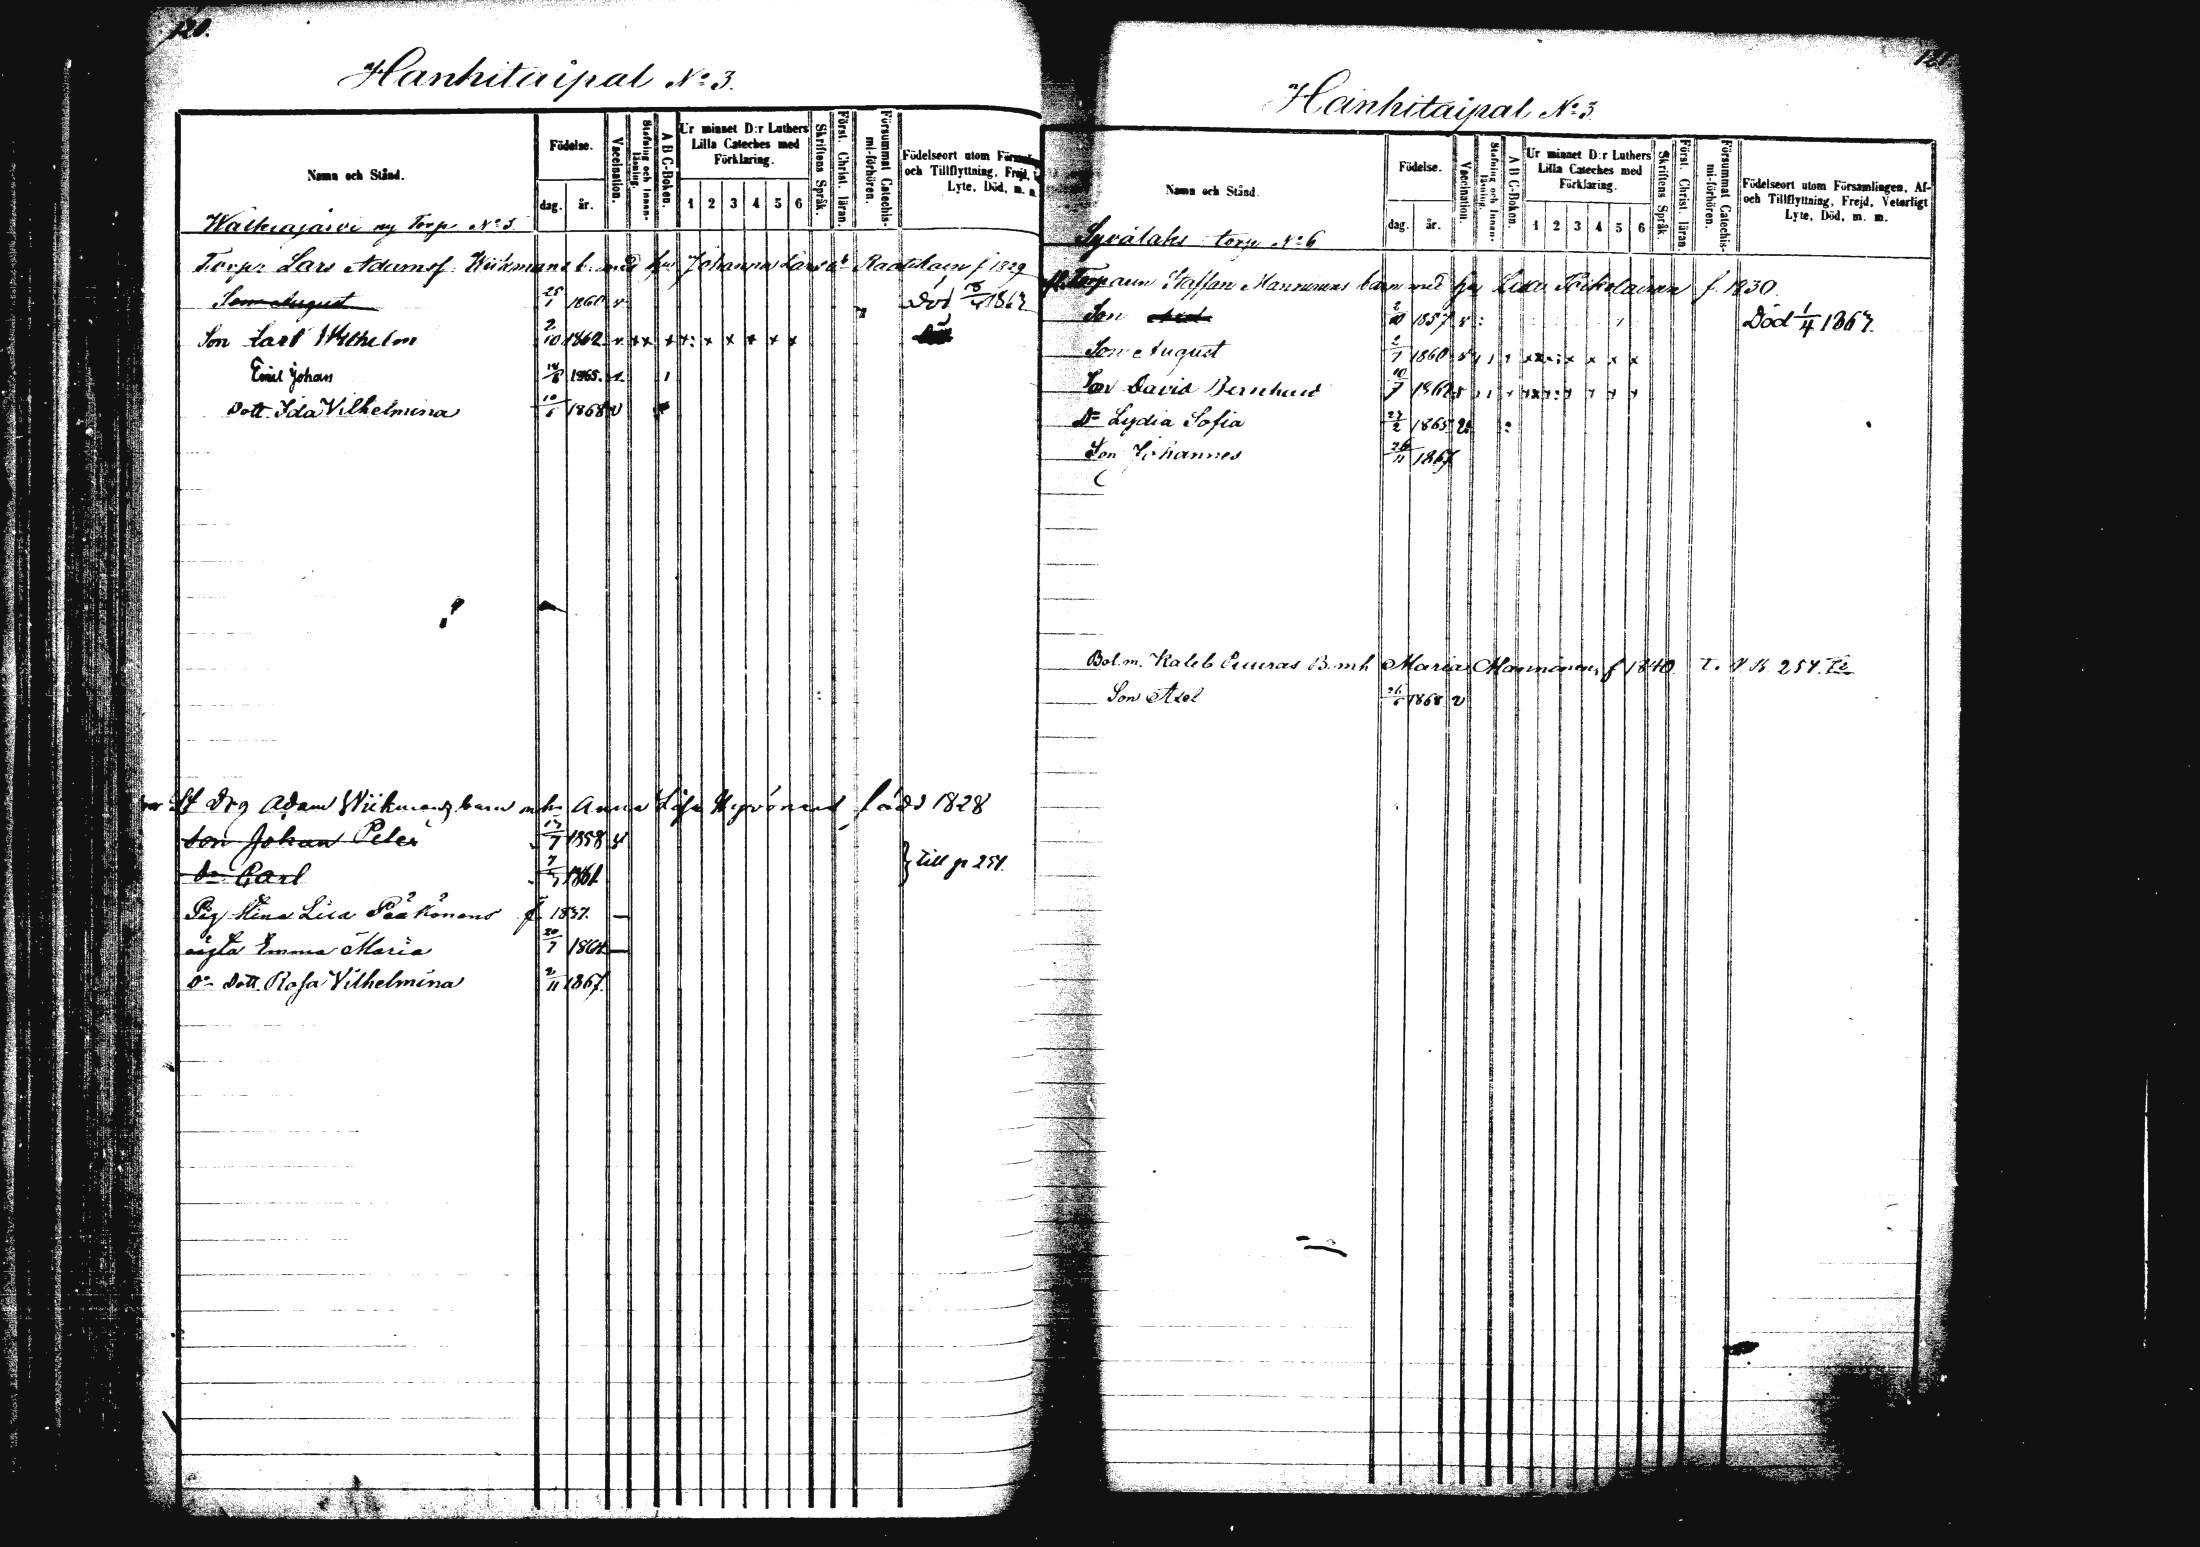 120.
Hanhitaipal No 3.
Namn och Stånd.
Födelse.
dag. år.
Vaccination.
Stafning och Innan-läsning.
A B C-Boken.
Ur minnet D:r Luthers Lilla Cateches med Förklaring.
1 2 3 4 5 6
Skriftens Språk.
Först. Christ. läran.
Försummat Catechis-mi-förhören.
Födelseort utom
och Tillflyttning, Frejd,
Lyte, Död, m. m.
ny Torp No 5
Torp: Lars Adamsf. Wiikmans b. med hu Johanna f 1829
Son August 25/1 1860 v Död 18/4 1867
Son Carl Wilhelm 2/10 1862 v
Emil Johan 14/8 1865.
Dott. Ida Vilhelmina 10/5 1868 v
Drg Adam Wiikmans barn m h Anna Lisa Hyvönens född 1828
Son Johan Peter 13/7 1858 v
Dn Carl 7/5 1861
} till p 254.
Pig Stina Lisa Pääkönens f. 1837. —
oägta Emma Maria 20/7 1864 —
Dn Dott. Rosa Vilhelmina 2/11 1867.
121
Hanhitaipal No 3.
Namn och Stånd.
Födelse.
dag. år.
Vaccination.
Stafning och Innan-läsning.
A B C-Boken.
Ur minnet D:r Luthers Lilla Cateches med Förklaring.
1 2 3 4 5 6
Skriftens Språk.
Först. Christ. läran.
Försummat Catechis-mi-förhören.
Födelseort utom Församlingen, Af-
och Tillflyttning, Frejd, Veterligt
Lyte, Död, m. m.
Syvälaks torp No 6
Torparen Staffan Manninens barn med hu Lisa f. 1830.
Son 2/10 1857 v Död 1/4 1867.
Son August 2/7 1860 v
Son David Bernhard 10/7 1862 v
Dr Lydia Sofia 27/2 1865 v
Son Johannes 26/11 1867
Bol.m. Kaleb Puuras B. m h Maria Manninen f 1840. T. N K 254.
Son Axel 26/5 1868 v